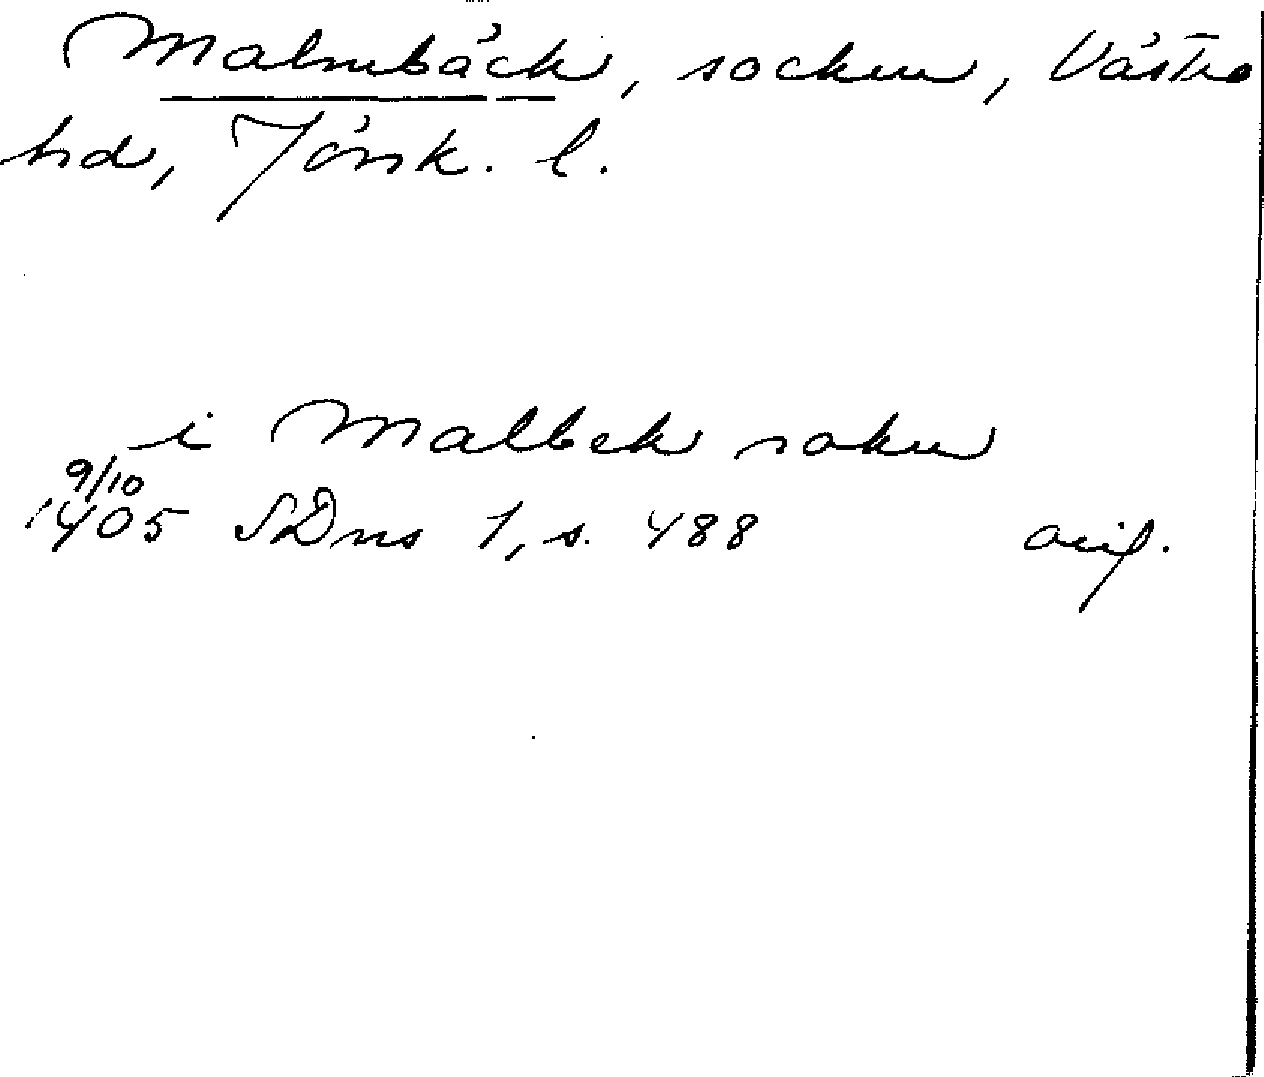 Malmbäck, socken, Västra
hd, Jönk. l.
i Malbek sokn
9/10
1405 SDns 1, s. 488 orig.